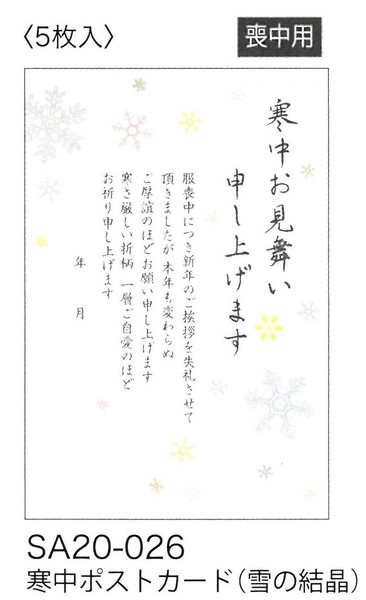 〈5枚入〉
喪中用
寒中お見舞い
申し上げます
服喪中につき新年のご挨拶を失礼させて
頂きましたが 本年も変わらぬ
ご厚誼のほどお願い申し上げます
寒さ厳しい折柄 一層ご自愛のほど
お祈り申し上げます
年 月
SA20-026
寒中ポストカード(雪の結晶)